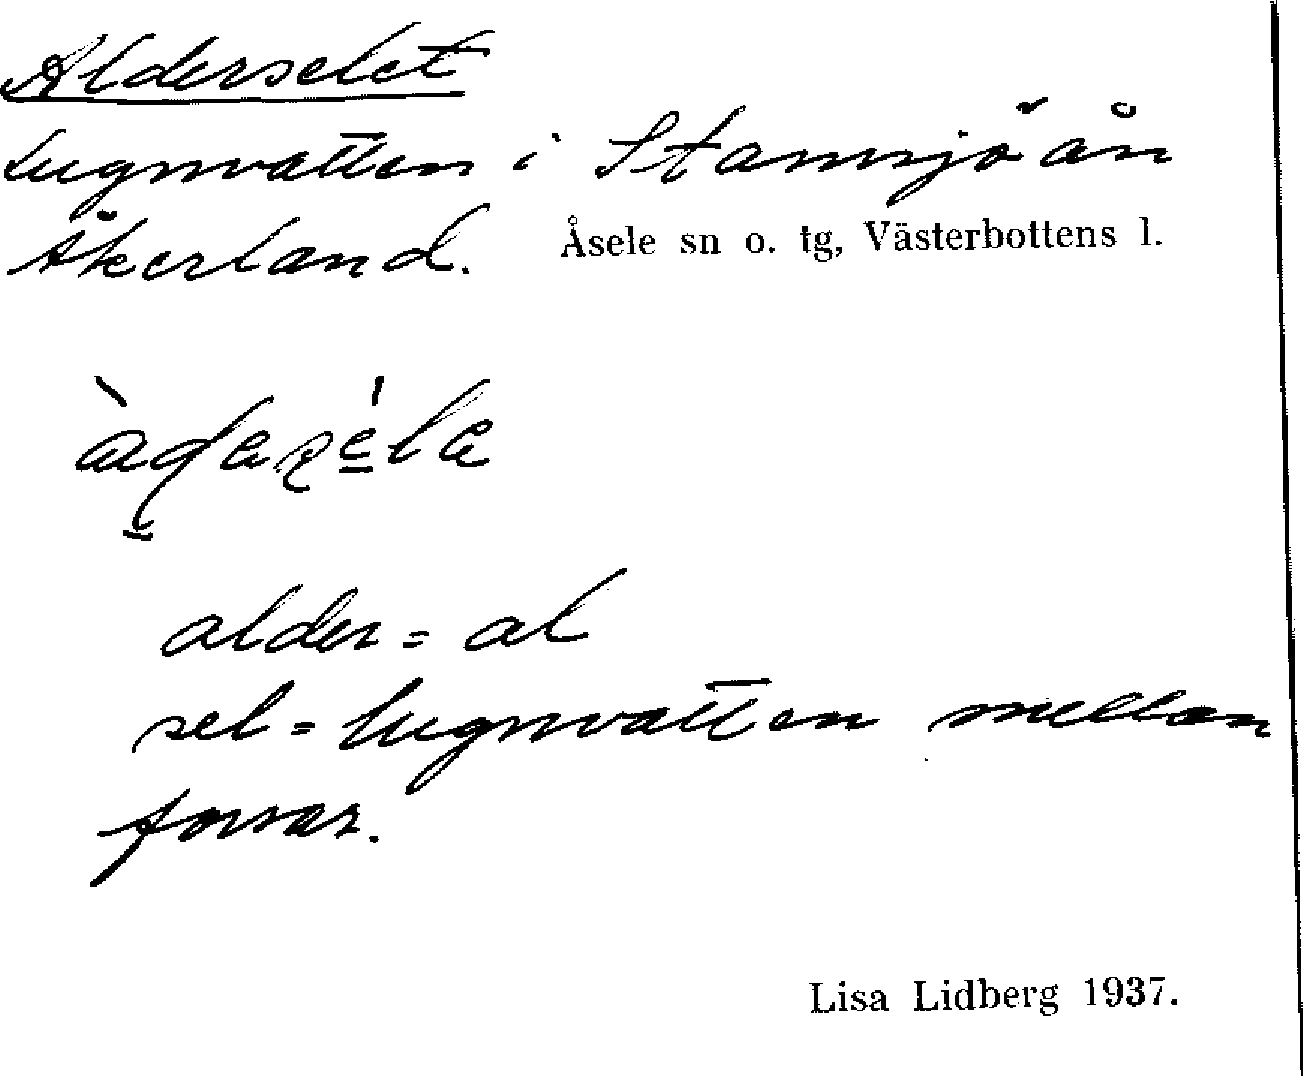 Alderselet
Lugnvatten i Stamsjöån
Åkerland. Åsele sn o. tg, Västerbottens l.
alder = al
sel = lugnvatten mellan
forsar.
Lisa Lidberg 1937.